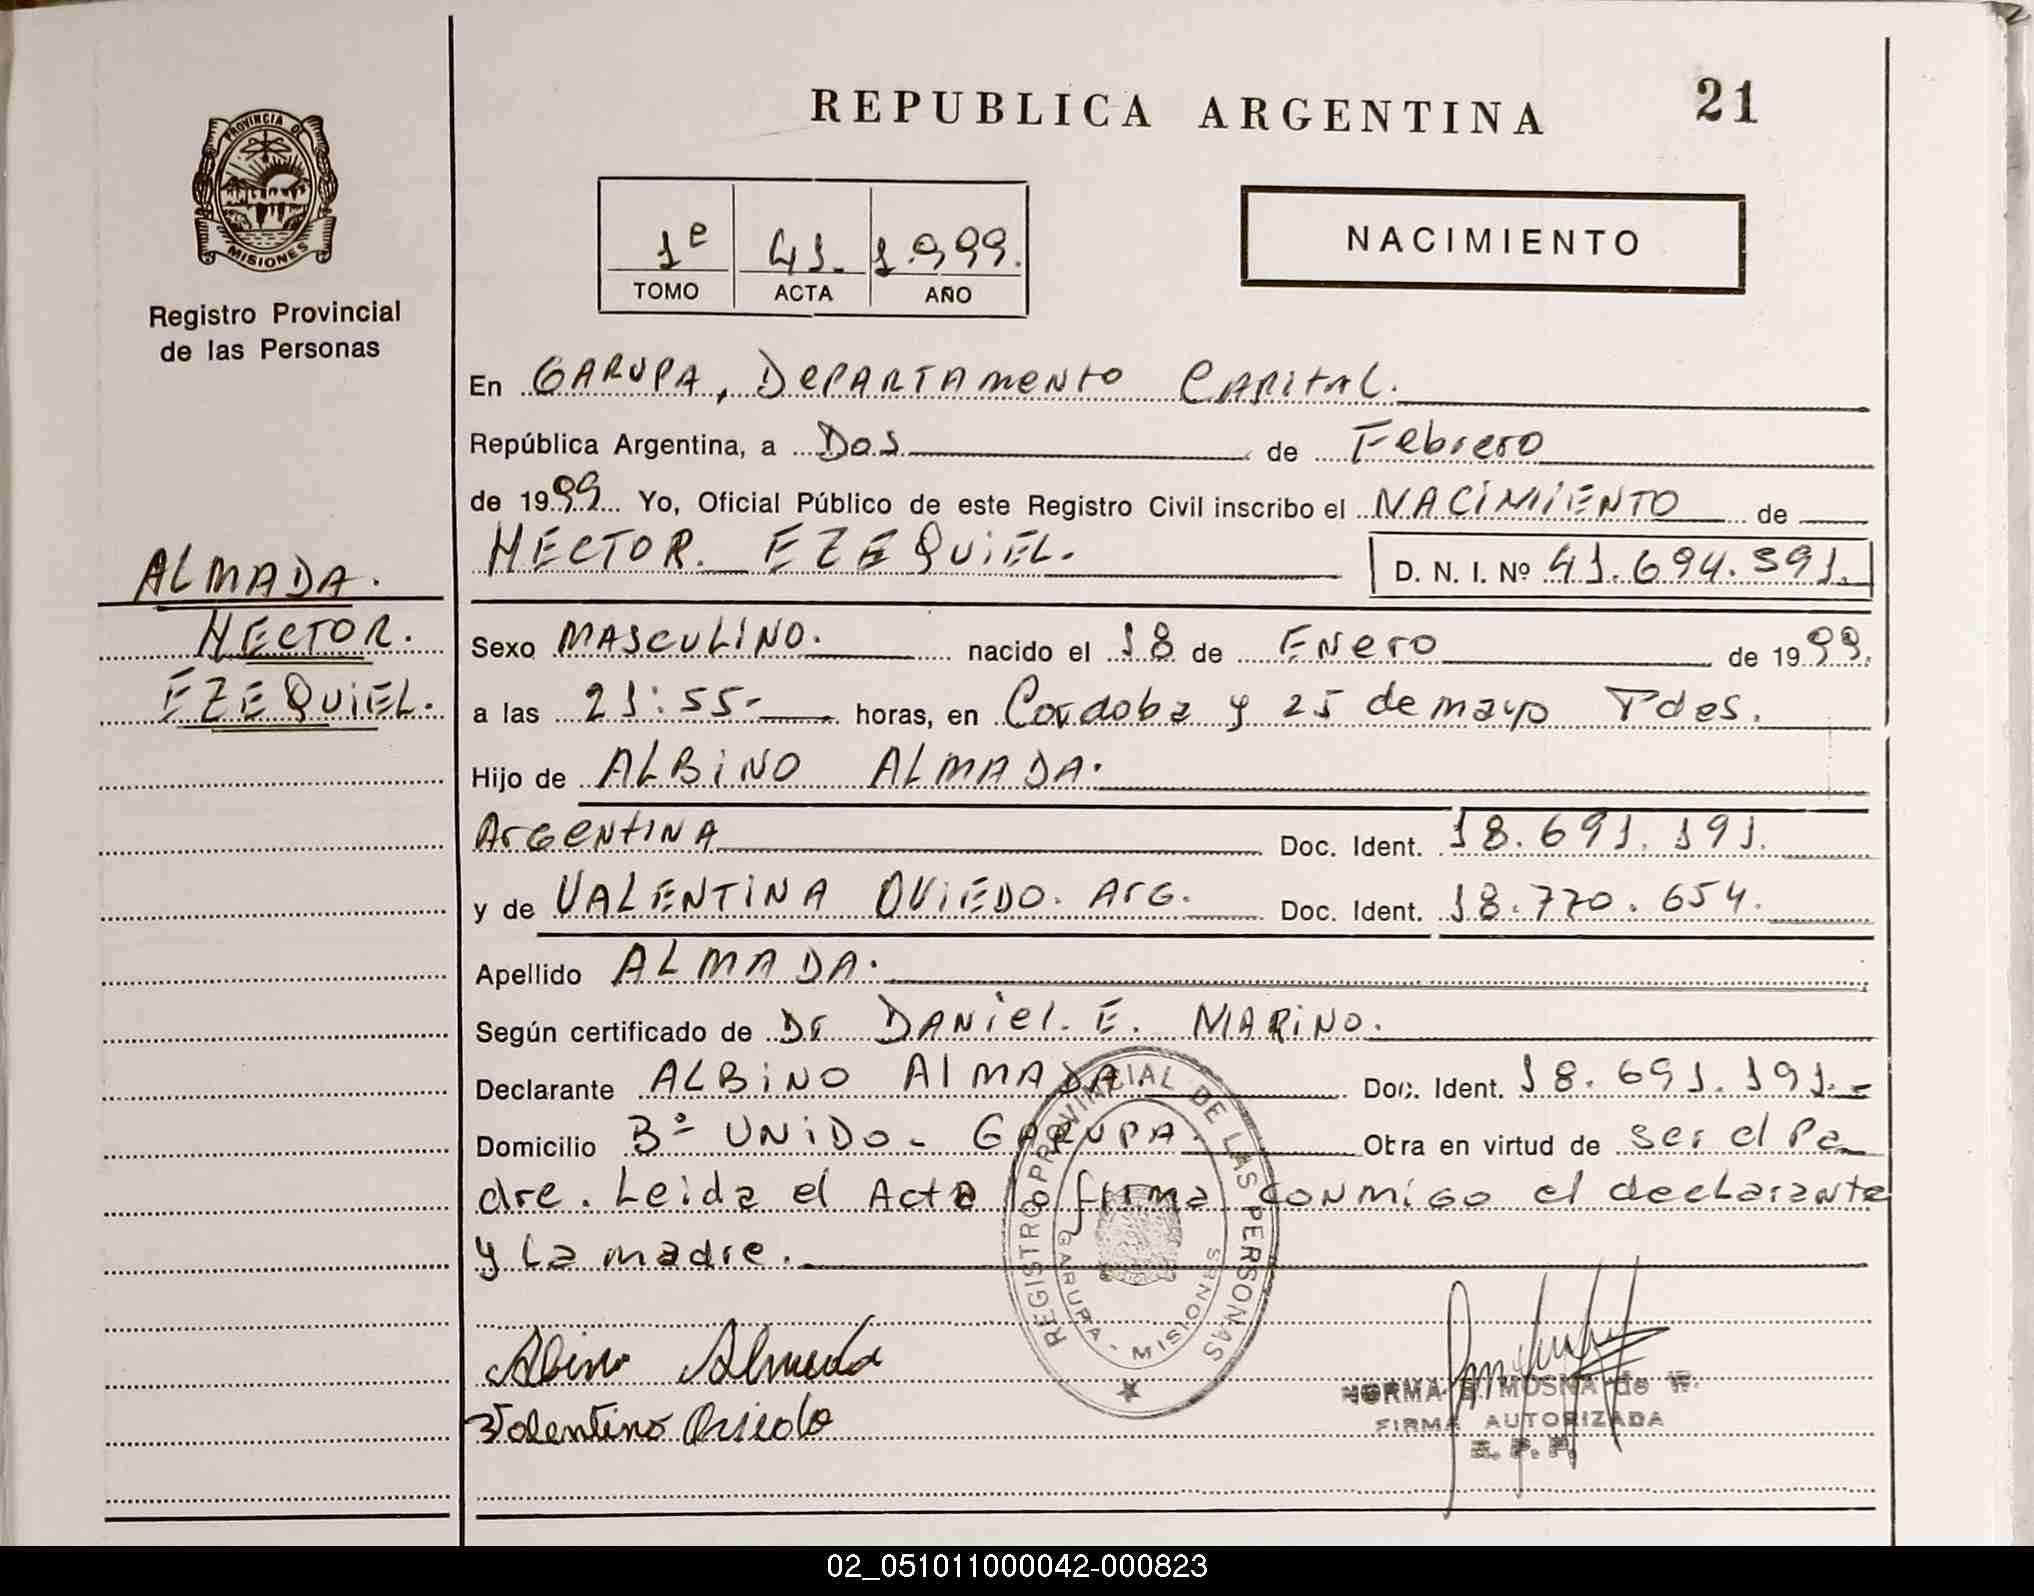 REPUBLICA ARGENTINA
21
PROVINCIA DE
MISIONES
Registro Provincial
de las Personas
1º 41. 1.999.
TOMO ACTA AÑO
NACIMIENTO
En GARUPA, DEPARTAMENTO CAPITAL.
República Argentina, a Dos de Febrero
de 1999 Yo, Oficial Público de este Registro Civil inscribo el NACIMIENTO de
HECTOR. EZEQUIEL. D. N. I. Nº 41.694.391.
ALMADA.
HECTOR.
EZEQUIEL.
Sexo MASCULINO. nacido el 18 de Enero de 1999.
a las 21:55- horas, en Cordoba y 25 de mayo Pdes.
Hijo de ALBINO ALMADA.
Argentina Doc. Ident. 18.691.191.
y de VALENTINA OVIEDO. Arg. Doc. Ident. 18.770.654.
Apellido ALMADA.
Según certificado de Dr DANIEL. E. MARINO.
Declarante ALBINO AlMADA Doc. Ident. 18.691.191.-
Domicilio Bº UNIDO - GARUPA. Obra en virtud de ser el Pa
dre. Leida el Acta lo firma conmigo el declarante
y La madre.
REGISTRO PROVINCIAL DE LAS PERSONAS
GARUPA - MISIONES
Albino Almada
Valentina Oviedo
NORMA MOSKA de
FIRMA AUTORIZADA
R. P. P.
02_051011000042-000823